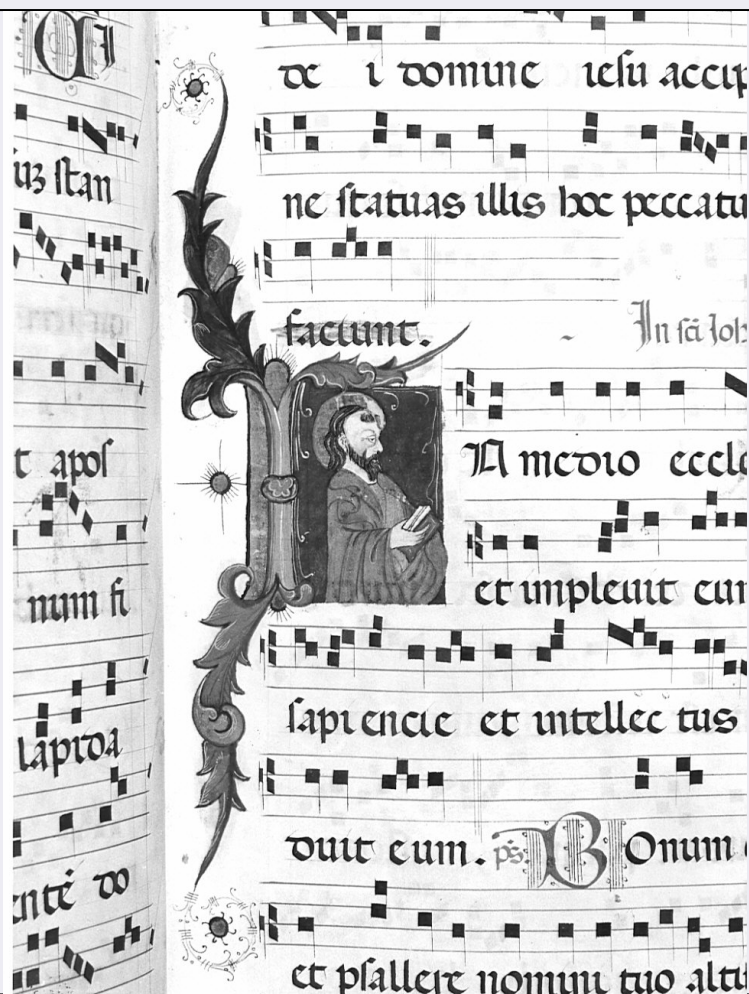 uz stan
t apos
num fi
lapida
ente do
de i domine iesu accip
ne statuas illis hoc peccatu
faciunt.
In sci Joh
IN medio eccle
et impleuit eum
sapiencie et intellec tus
duit eum. ps. BOnum
et psallere nomini tuo alti